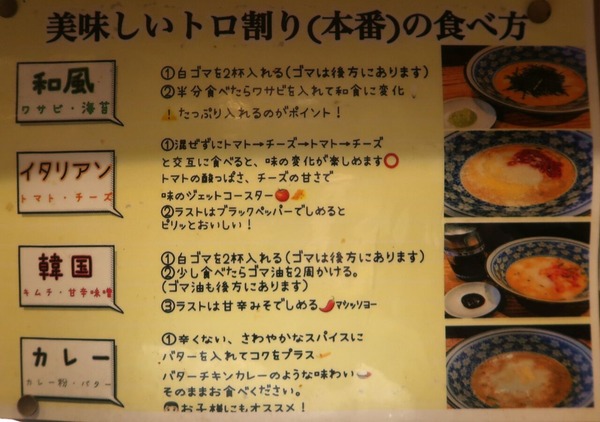 美味しいトロ割り(本番)の食べ方
和風
ワサビ・海苔
①白ゴマを2杯入れる(ゴマは後方にあります)
②半分食べたらワサビを入れて和食に変化
⚠たっぷり入れるのがポイント!
イタリアン
トマト・チーズ
①混ぜずにトマト→チーズ→トマト→チーズ
と交互に食べると、味の変化が楽しめます⭕
トマトの酸っぱさ、チーズの甘さで
味のジェットコースター🍅🧀
②ラストはブラックペッパーでしめると
ピリッとおいしい!
韓国
キムチ・甘辛味噌
①白ゴマを2杯入れる(ゴマは後方にあります)
②少し食べたらゴマ油を2周かける。
(ゴマ油も後方にあります)
③ラストは甘辛みそでしめる🌶マシッソヨー
カレー
カレー粉・バター
①辛くない、さわやかなスパイスに
バターを入れてコクをプラス
バターチキンカレーのような味わい
そのままお食べください。
お子様にもオススメ!